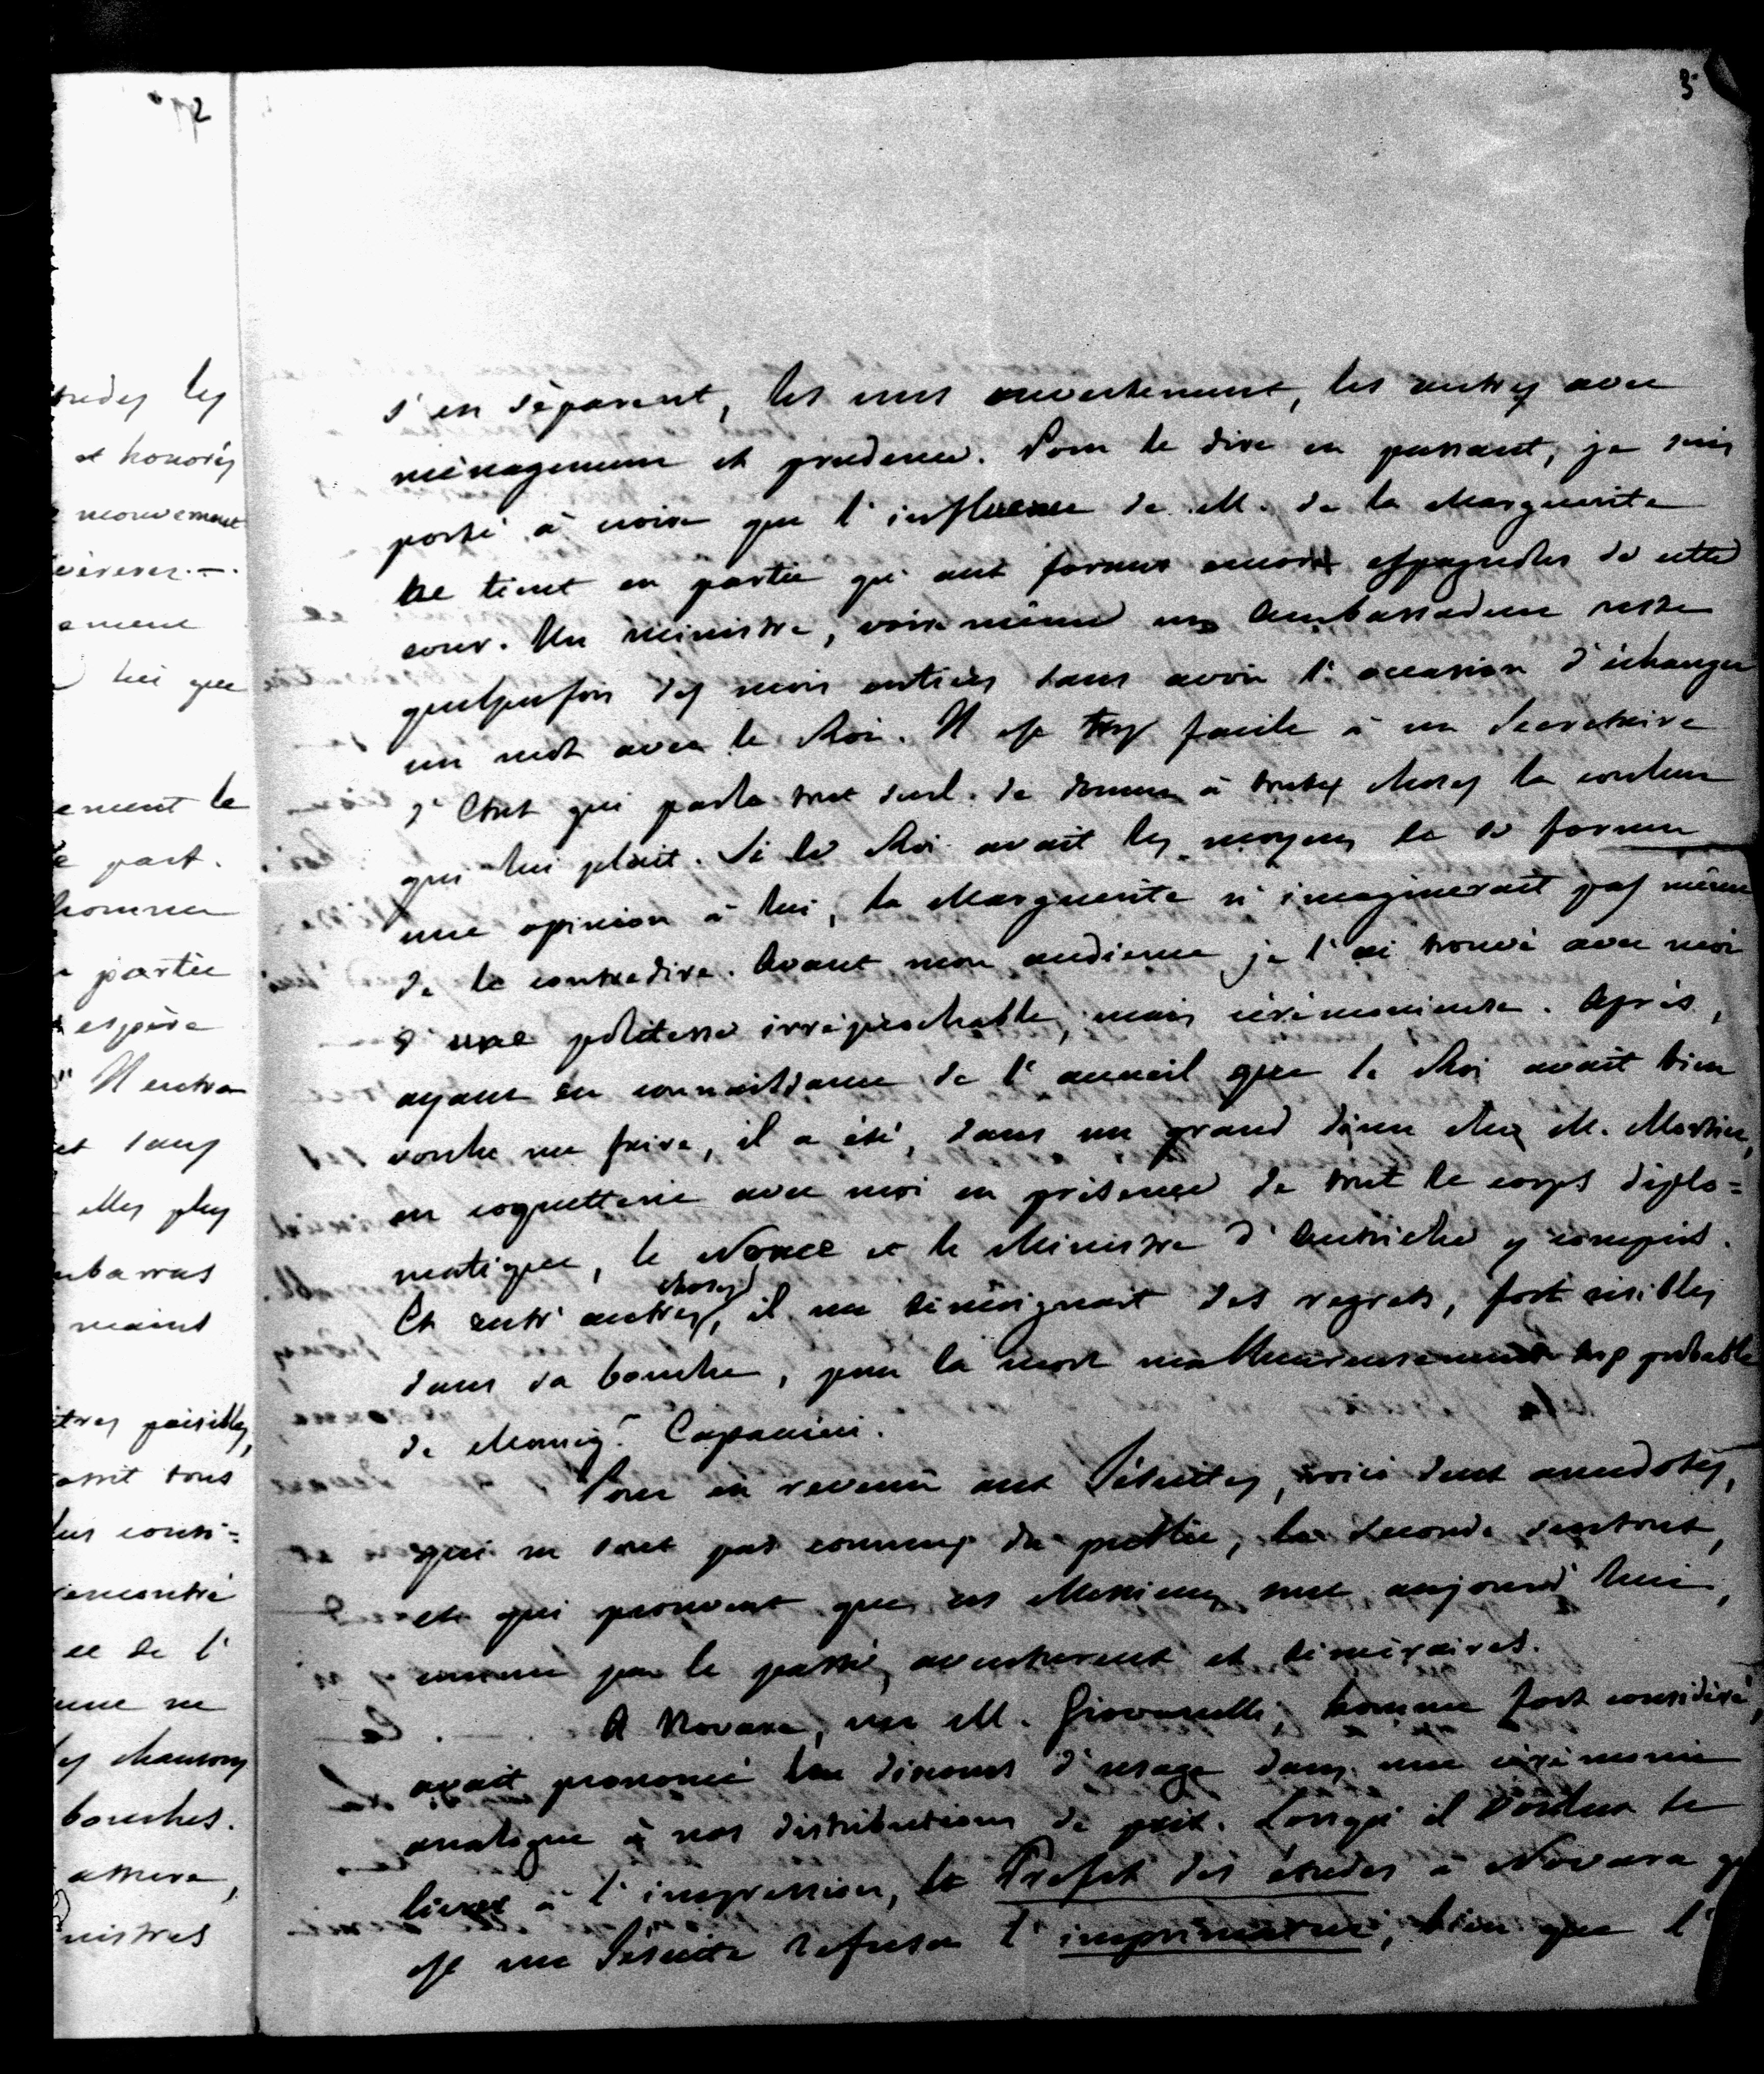 2
tudes les
et honorés
mouvement
vèrerez.—.
ement
lui que
ement le
part.
homme
partie
espère
" Il entra
et sans
elles plus
mbarras
maint
itres paisibles,
tous
lus consi=
rencontré
ce de l'
une ne
les chansons
bouches.
amere,
nistres
3
s'en séparent, les uns ouvertement, les autres avec
ménagement et prudence. Pour le dire en passant, je suis
porté à croire que l'influence de M. de la Marguerite
tient en partie qu' aux formes encore espagnoles de cette
cour. Un ministre, voire même un Ambassadeur reste
quelquefois des mois entiers sans avoir l'occasion d'échanger
un mot avec le Roi. Il est trop facile à un Secretaire
d'Etat qui parle tout seul de donner à toutes choses la couleur
qui lui plait. Si le Roi avait les moyens de se former
une opinion à lui, la Marguerite n'imaginerait pas même
de le contredire. Avant mon audience je l'ai trouvé avec moi
d'une politesse irréprochable, mais cérémonieuse. Après,
ayant eu connaissance de l'accueil que le Roi avait bien
voulu me faire, il a été, dans un grand diner chez M. Mortier,
en coquetterie avec moi en présence de tout le corps diplo=
matique, le Nonce et le Ministre d'Autriche y compris.
Et entr'autres choses, il me témoignait des regrets, fort risibles
dans sa bouche, pour la mort malheureusement trop probable
de Monsig.r Capaccini.
Pour en revenir aux Jésuites, voici deux anecdotes,
qui ne sont pas connues du public, la seconde surtout,
et qui prouvent que ces Messieurs sont aujourd'hui,
comme par le passé, aventureux et téméraires.
A Novare, un M. Giovanelli, homme fort considéré,
avait prononcé un discours d'usage dans une cérémonie
analogue à nos distributions de prix. Lorsqu'il voulut le
livrer à l'impression, le Prefet des études à Novara
est un Jésuite refusa l'imprimatur, bien que l'